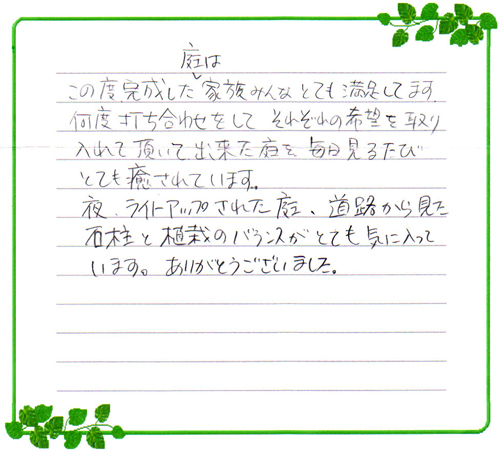 庭は
この度完成した家族みんなとても満足してます。
何度打ち合わせをして それぞれの希望を取り
入れて頂いて出来た庭を 毎日見るたび
とても癒されています。
夜、ライトアップされた庭、道路から見た
石柱と植栽のバランスがとても気に入って
います。ありがとうございました。